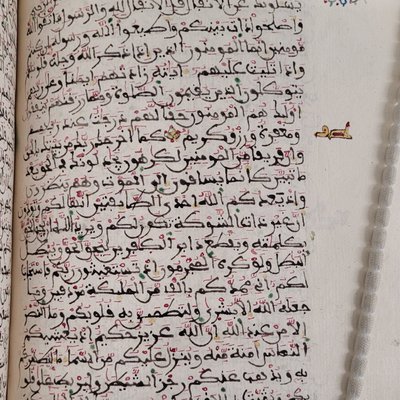 يسئلونك عن الأنفال قل الأنفال لله والرسول فاتقوا الله
وأصلحوا ذات بينكم وأطيعوا الله ورسوله إن كنتم
مومنين إنما المومنون الذين إذا ذكر الله وجلت قلوبهم
وإذا تليت عليهم ءايته زادتهم إيمنا وعلى ربهم
يتوكلون الذين يقيمون الصلوة ومما رزقنهم ينفقون
أولئك هم المومنون حقا لهم درجت عند ربهم
ومغفرة ورزق كريم كما أخرجك ربك من بيتك بالحق
وإن فريقا من المومنين لكرهون يجدلونك في الحق بعد
ما تبين كأنما يساقون إلى الموت وهم ينظرون
وإذ يعدكم الله إحدى الطائفتين أنها لكم وتودون
أن غير ذات الشوكة تكون لكم ويريد الله أن يحق الحق
بكلمته ويقطع دابر الكفرين ليحق الحق ويبطل
البطل ولو كره المجرمون إذ تستغيثون ربكم فاستجاب
لكم أني ممدكم بألف من الملئكة مردفين وما
جعله الله إلا بشرى ولتطمئن به قلوبكم وما النصر
إلا من عند الله إن الله عزيز حكيم إذ يغشيكم
النعاس أمنة منه وينزل عليكم من السماء ماء ليطهركم
به ويذهب عنكم رجز الشيطن وليربط على قلو